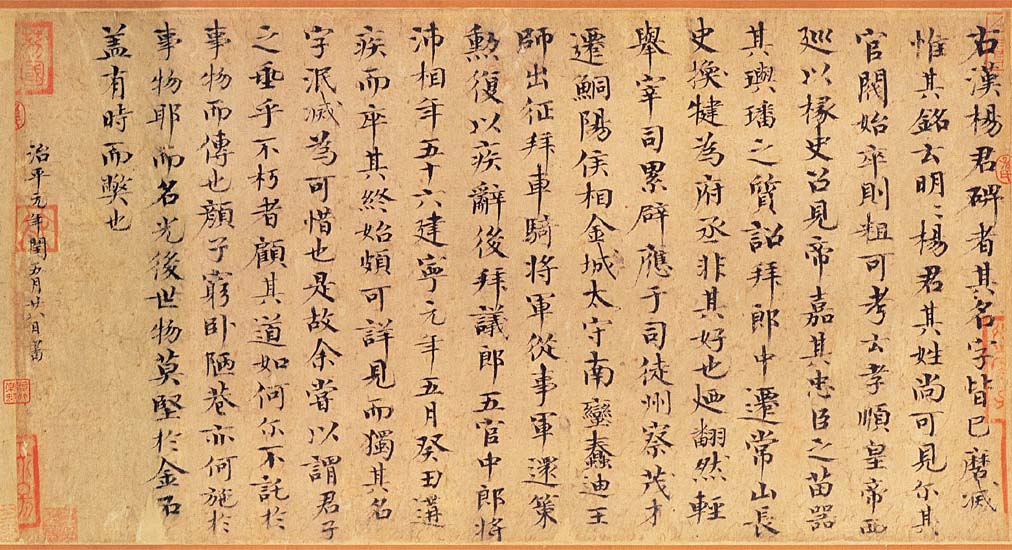 右漢楊君碑者其名字皆已磨滅
惟其銘云明〻楊君其姓尚可見尔其
官閥始卒則粗可考云孝順皇帝西
巡以掾史召見帝嘉其忠臣之苗器
其璵璠之質詔拜郎中遷常山長
史換犍為府丞非其好也迺翻然輕
舉宰司累辟應于司徒州察茂才
遷鮦陽侯相金城太守南蠻蠢迪王
師出征拜車騎將軍從事軍還策
勲復以疾辭後拜議郎五官中郎將
沛相年五十六建寧元年五月癸丑遘
疾而卒其終始頗可詳見而獨其名
字泯滅為可惜也是故余嘗以謂君子
之垂乎不朽者顧其道如何尔不託於
事物而傳也顏子窮卧陋巷亦何施於
事物耶而名光後世物莫堅於金石
盖有時而獘也
治平元年閏五月廿八日書